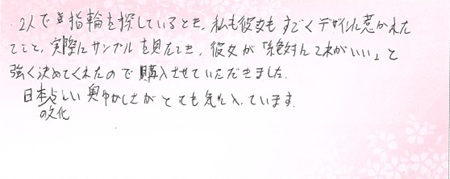 2人で指輪を探しているとき、私も彼女もすごくデザインに惹かれた
てこと、実際にサンプルを見たとき、彼女が「絶対これがいい」と
強く決めてくれたので購入させていただきました。
日本らしい奥ゆかしさがとても気に入っています。
の文化